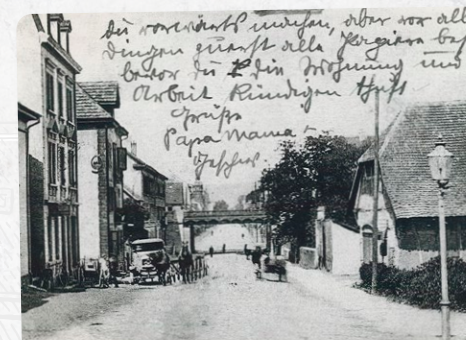 du vorwärts machen, aber vor all
Dingen zuerst alle Papiere be
bevor du die Wohnung und
Arbeit kündigen thust
Grüße
Papa Mama